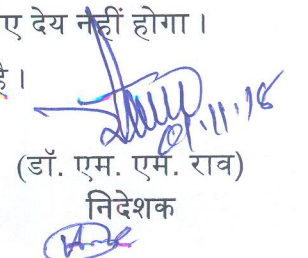 ए देय नहीं होगा।
है।
01.11.18
(डॉ. एम. एम. राव)
निदेशक